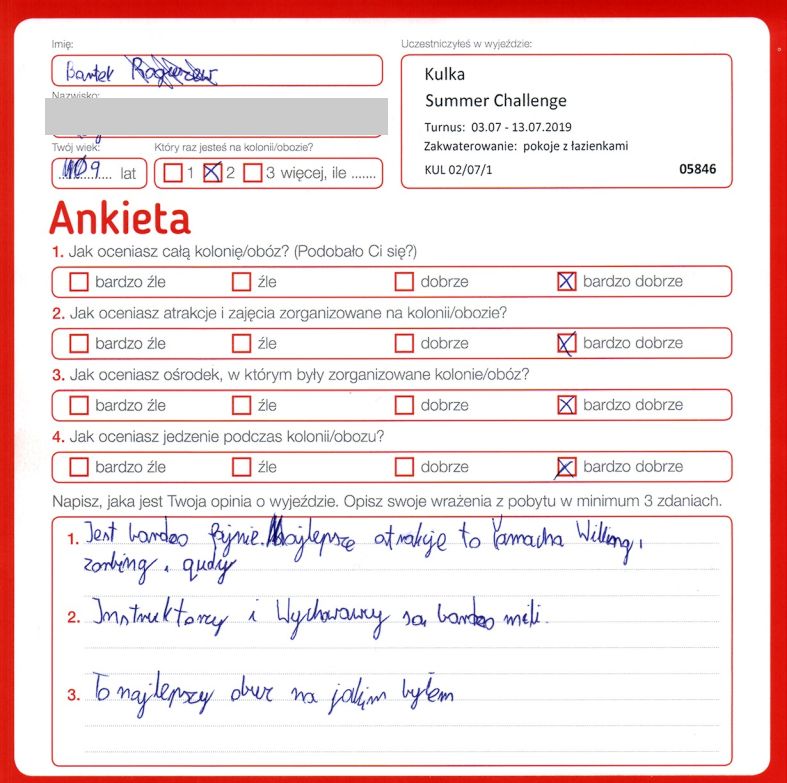 Imię:
Uczestniczyłeś w wyjeździe:
Bartek
Kulka
Summer Challenge
Nazwisko:
Turnus: 03.07 - 13.07.2019
Zakwaterowanie: pokoje z łazienkami
KUL 02/07/1 05846
Twój wiek: Który raz jesteś na kolonii/obozie?
9 lat 1 2 3 więcej, ile .......
Ankieta
1. Jak oceniasz całą kolonię/obóz? (Podobało Ci się?)
bardzo źle źle dobrze bardzo dobrze
2. Jak oceniasz atrakcje i zajęcia zorganizowane na kolonii/obozie?
bardzo źle źle dobrze bardzo dobrze
3. Jak oceniasz ośrodek, w którym były zorganizowane kolonie/obóz?
bardzo źle źle dobrze bardzo dobrze
4. Jak oceniasz jedzenie podczas kolonii/obozu?
bardzo źle źle dobrze bardzo dobrze
Napisz, jaka jest Twoja opinia o wyjeździe. Opisz swoje wrażenia z pobytu w minimum 3 zdaniach.
1. Jest bardzo fajnie. Najlepsze atrakcje to Yamacha
zorbing, qudy
2. Instruktorzy i Wychowawcy są bardzo mili.
3. To najlepszy obuz na jakim byłem